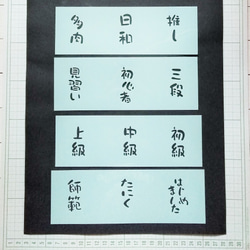 推し
日和
多肉
三段
初心者
見習い
初級
中級
上級
はじめ
ました
たにく
師範